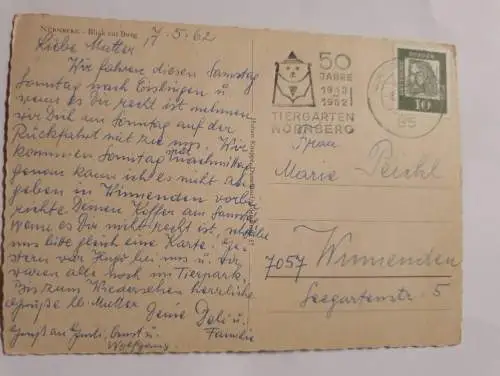 NÜRNBERG – Blick zur Burg
7.5.62
Liebe Mutter
Wir fahren diesen Samstag
Sonntag nach Eislingen u
wenn es Dir recht ist nehmen
wir Dich am Sonntag auf der
Rückfahrt mit zu uns. Wir
kommen Sonntag nachmittag
genau kann ich es nicht an-
geben in Winnenden vorbei
richte Deinen Koffer am Samstag
wenn es Dir nicht recht ist,
uns bitte gleich eine Karte. Ge-
stern war bei uns u. wir
waren alle noch im Tierpark.
Bis zum Wiedersehen herzliche
Grüße lb. Mutter
Deine u.
Familie
Gruß an Ernst u.
Wolfgang
50
JAHRE
1912
1962
TIERGARTEN
NÜRNBERG
10
Frau
Marie
7057 Winnenden
Seegartenstr. 5